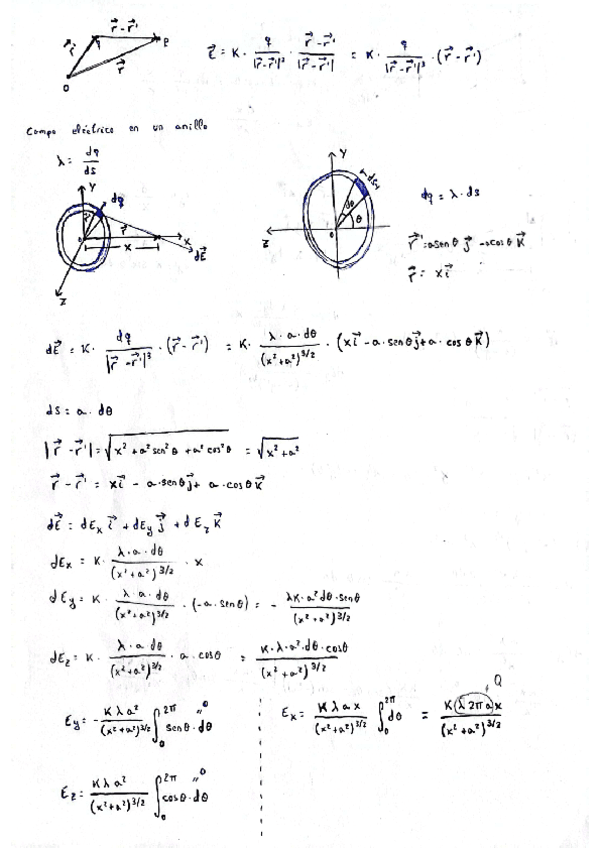 r⃗ - r⃗'
r⃗' q P
r⃗
O
E⃗ = K · q/|r⃗-r⃗'|² · (r⃗-r⃗')/|r⃗-r⃗'| = K · q/|r⃗-r⃗'|³ · (r⃗-r⃗')
Campo eléctrico en un anillo
λ = dq/ds
Y dq
r⃗' r⃗
O x X
dE⃗
Z
Y
ds
dθ
θ
Z O
dq = λ · ds
r⃗' = a senθ j⃗ - a cosθ K⃗
r⃗ = x i⃗
dE⃗ = K · dq/|r⃗-r⃗'|³ · (r⃗-r⃗') = K · λ·a·dθ/(x²+a²)^3/2 · (x i⃗ - a·senθ j⃗ + a·cosθ K⃗)
ds = a · dθ
|r⃗-r⃗'| = √(x² + a² sen²θ + a² cos²θ) = √(x² + a²)
r⃗ - r⃗' = x i⃗ - a·senθ j⃗ + a·cosθ K⃗
dE⃗ = dEx i⃗ + dEy j⃗ + dEz K⃗
dEx = K · λ·a·dθ/(x²+a²)^3/2 · x
dEy = K · λ·a·dθ/(x²+a²)^3/2 · (-a senθ) = - λK·a²dθ·senθ/(x²+a²)^3/2
dEz = K · λ·a·dθ/(x²+a²)^3/2 · a cosθ = K·λ·a²·dθ·cosθ/(x²+a²)^3/2
Ey = - Kλa²/(x²+a²)^3/2 ∫₀^2π senθ·dθ "0
Ez = Kλa²/(x²+a²)^3/2 ∫₀^2π cosθ·dθ "0
Ex = Kλax/(x²+a²)^3/2 ∫₀^2π dθ = K(λ2πa)x/(x²+a²)^3/2
Q